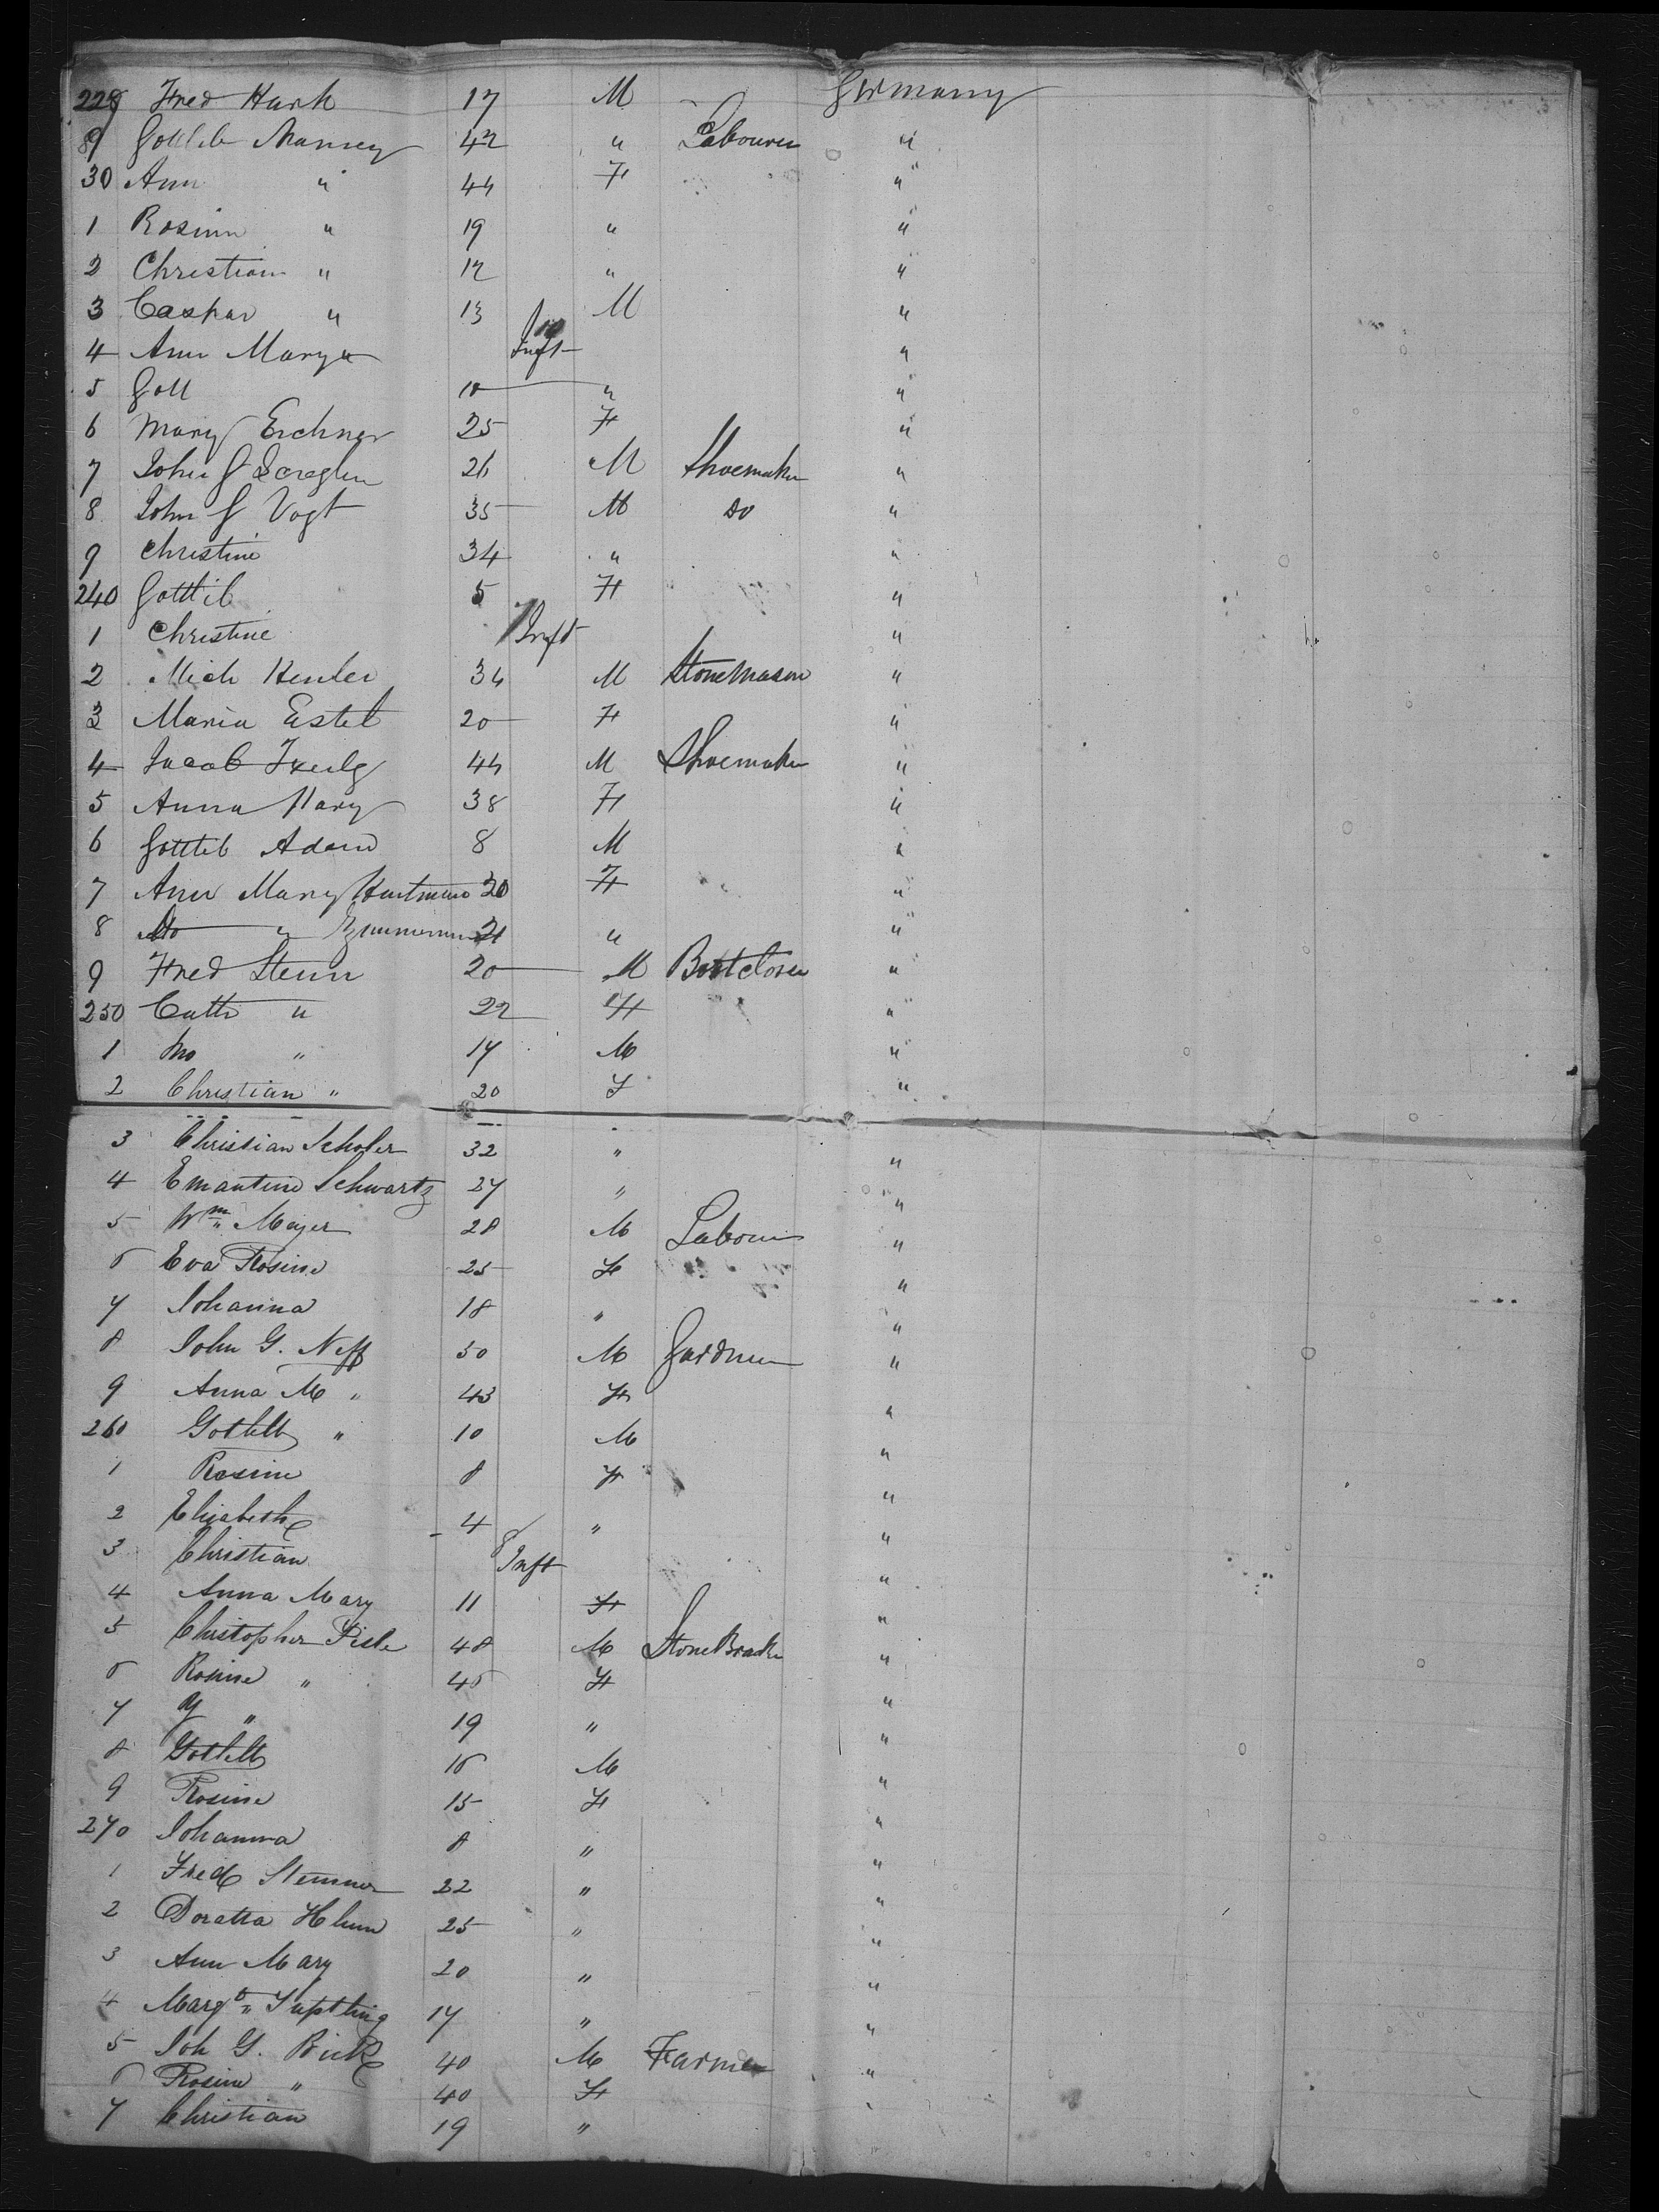 228 Fred Hark 17 M Germany
9 Gottlib Mansey 42 " Labourer "
30 Ann " 44 F "
1 Rosinn " 19 " "
2 Christian " 12 " "
3 Caspar " 13 M "
4 Ann Mary " Inft "
5 Gott 10 " "
6 Mary Eichner 25 F "
7 John G 26 M Shoemaker "
8 John G Vogt 35 M Do "
9 Christine 34 " "
240 Gottlib 5 F "
1 Christine Inft "
2 Mich Henler 34 M Stone Mason "
3 Maria Estel 20 F "
4 Jacob 44 M Shoemaker "
5 Anna Mary 38 F "
6 Gottlib Adam 8 M "
7 Ann Mary Hartmann 20 F "
8 Do " Zimmerman 21 " "
9 Fred Stenn 20 M "
250 Cath " 22 F "
1 Jno " 17 M "
2 Christian " 20 F "
3 Christian Scholer 32 " "
4 Emantine Schwartz 27 " "
5 Wm Mayer 28 M Labour "
6 Eva Rosine 25 F "
7 Johanna 18 " "
8 John G. Neff 50 M Gardner "
9 Anna M " 43 F "
260 Gotlib " 10 M "
1 Rosine 8 F "
2 Elizabeth 4 " "
3 Christian Inft "
4 Anna Mary 11 F "
5 Christopher Pisle 48 M Stone Breaker "
6 Rosine " 46 F "
7 " 19 " "
8 Gotlib 16 M "
9 Rosine 15 F "
270 Johanna 8 " "
1 Fred Stemmer 22 " "
2 Doratta 25 " "
3 Ann Mary 20 " "
4 Margt 17 " "
5 Joh G. Bick 40 M Farmer "
6 Rosine " 40 F "
7 Christian 19 "